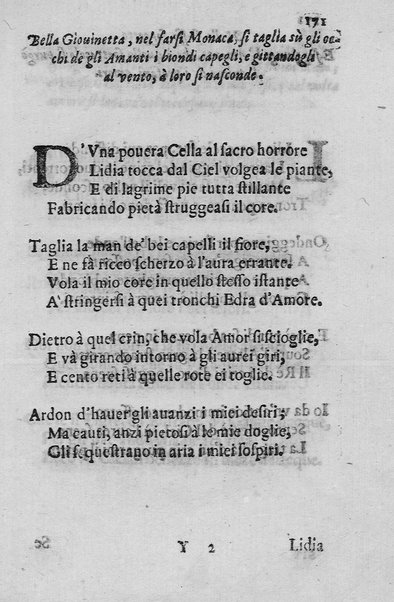 171
Bella Giouinetta, nel farsi Monaca, si taglia sù gli oc-
chi de gli Amanti i biondi capegli, e gittandogli
al vento, à loro si nasconde.
D'Vna pouera Cella al sacro horrore
Lidia tocca dal Ciel volgea le piante,
E di lagrime pie tutta stillante
Fabricando pietà struggeasi il core.
Taglia la man de' bei capelli il fiore,
E ne fà ricco scherzo à l'aura errante.
Vola il mio core in quello stesso istante
A' stringersi à quei tronchi Edra d'Amore.
Dietro à quel crin, che vola Amor si scioglie,
E và girando intorno à gli aurei giri,
E cento reti à quelle rote ei toglie.
Ardon d'hauer gli auanzi i miei desiri;
Ma cauti, anzi pietosi à le mie doglie,
Gli sequestrano in aria i miei sospiri.
Y 2 Lidia